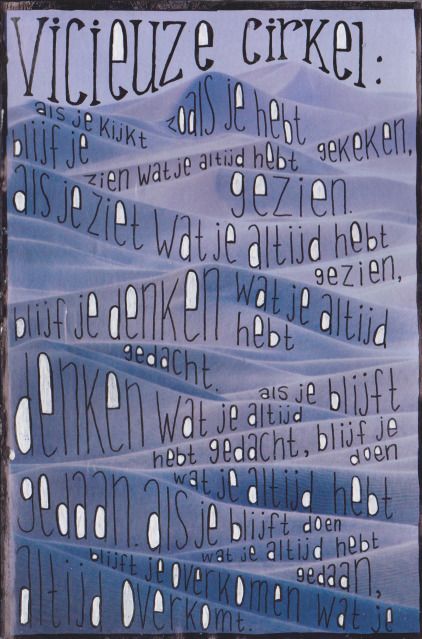 Vicieuze cirkel:
als je kijkt zoals je hebt gekeken,
blijf je zien wat je altijd hebt
gezien.
als je ziet wat je altijd hebt
gezien,
blijf je denken wat je altijd
hebt
gedacht.
als je blijft
denken wat je altijd
hebt gedacht, blijf je
doen
wat je altijd hebt
gedaan. als je blijft doen
wat je altijd hebt
gedaan,
blijft je overkomen wat je
altijd overkomt.